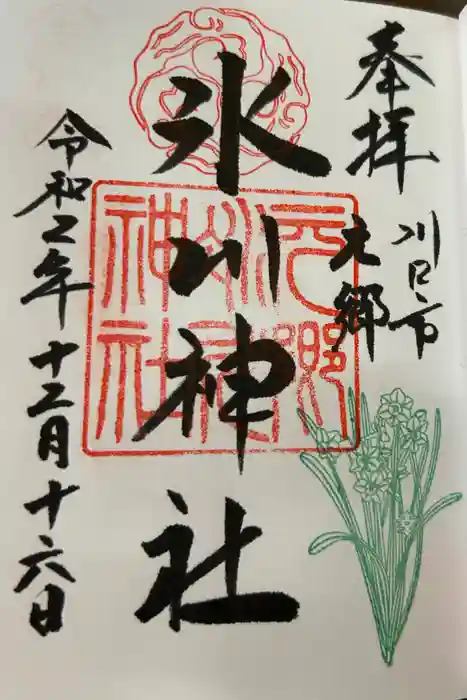 奉拝
川口市
元郷
氷川神社
元郷
氷川
神社
令和二年十二月十六日